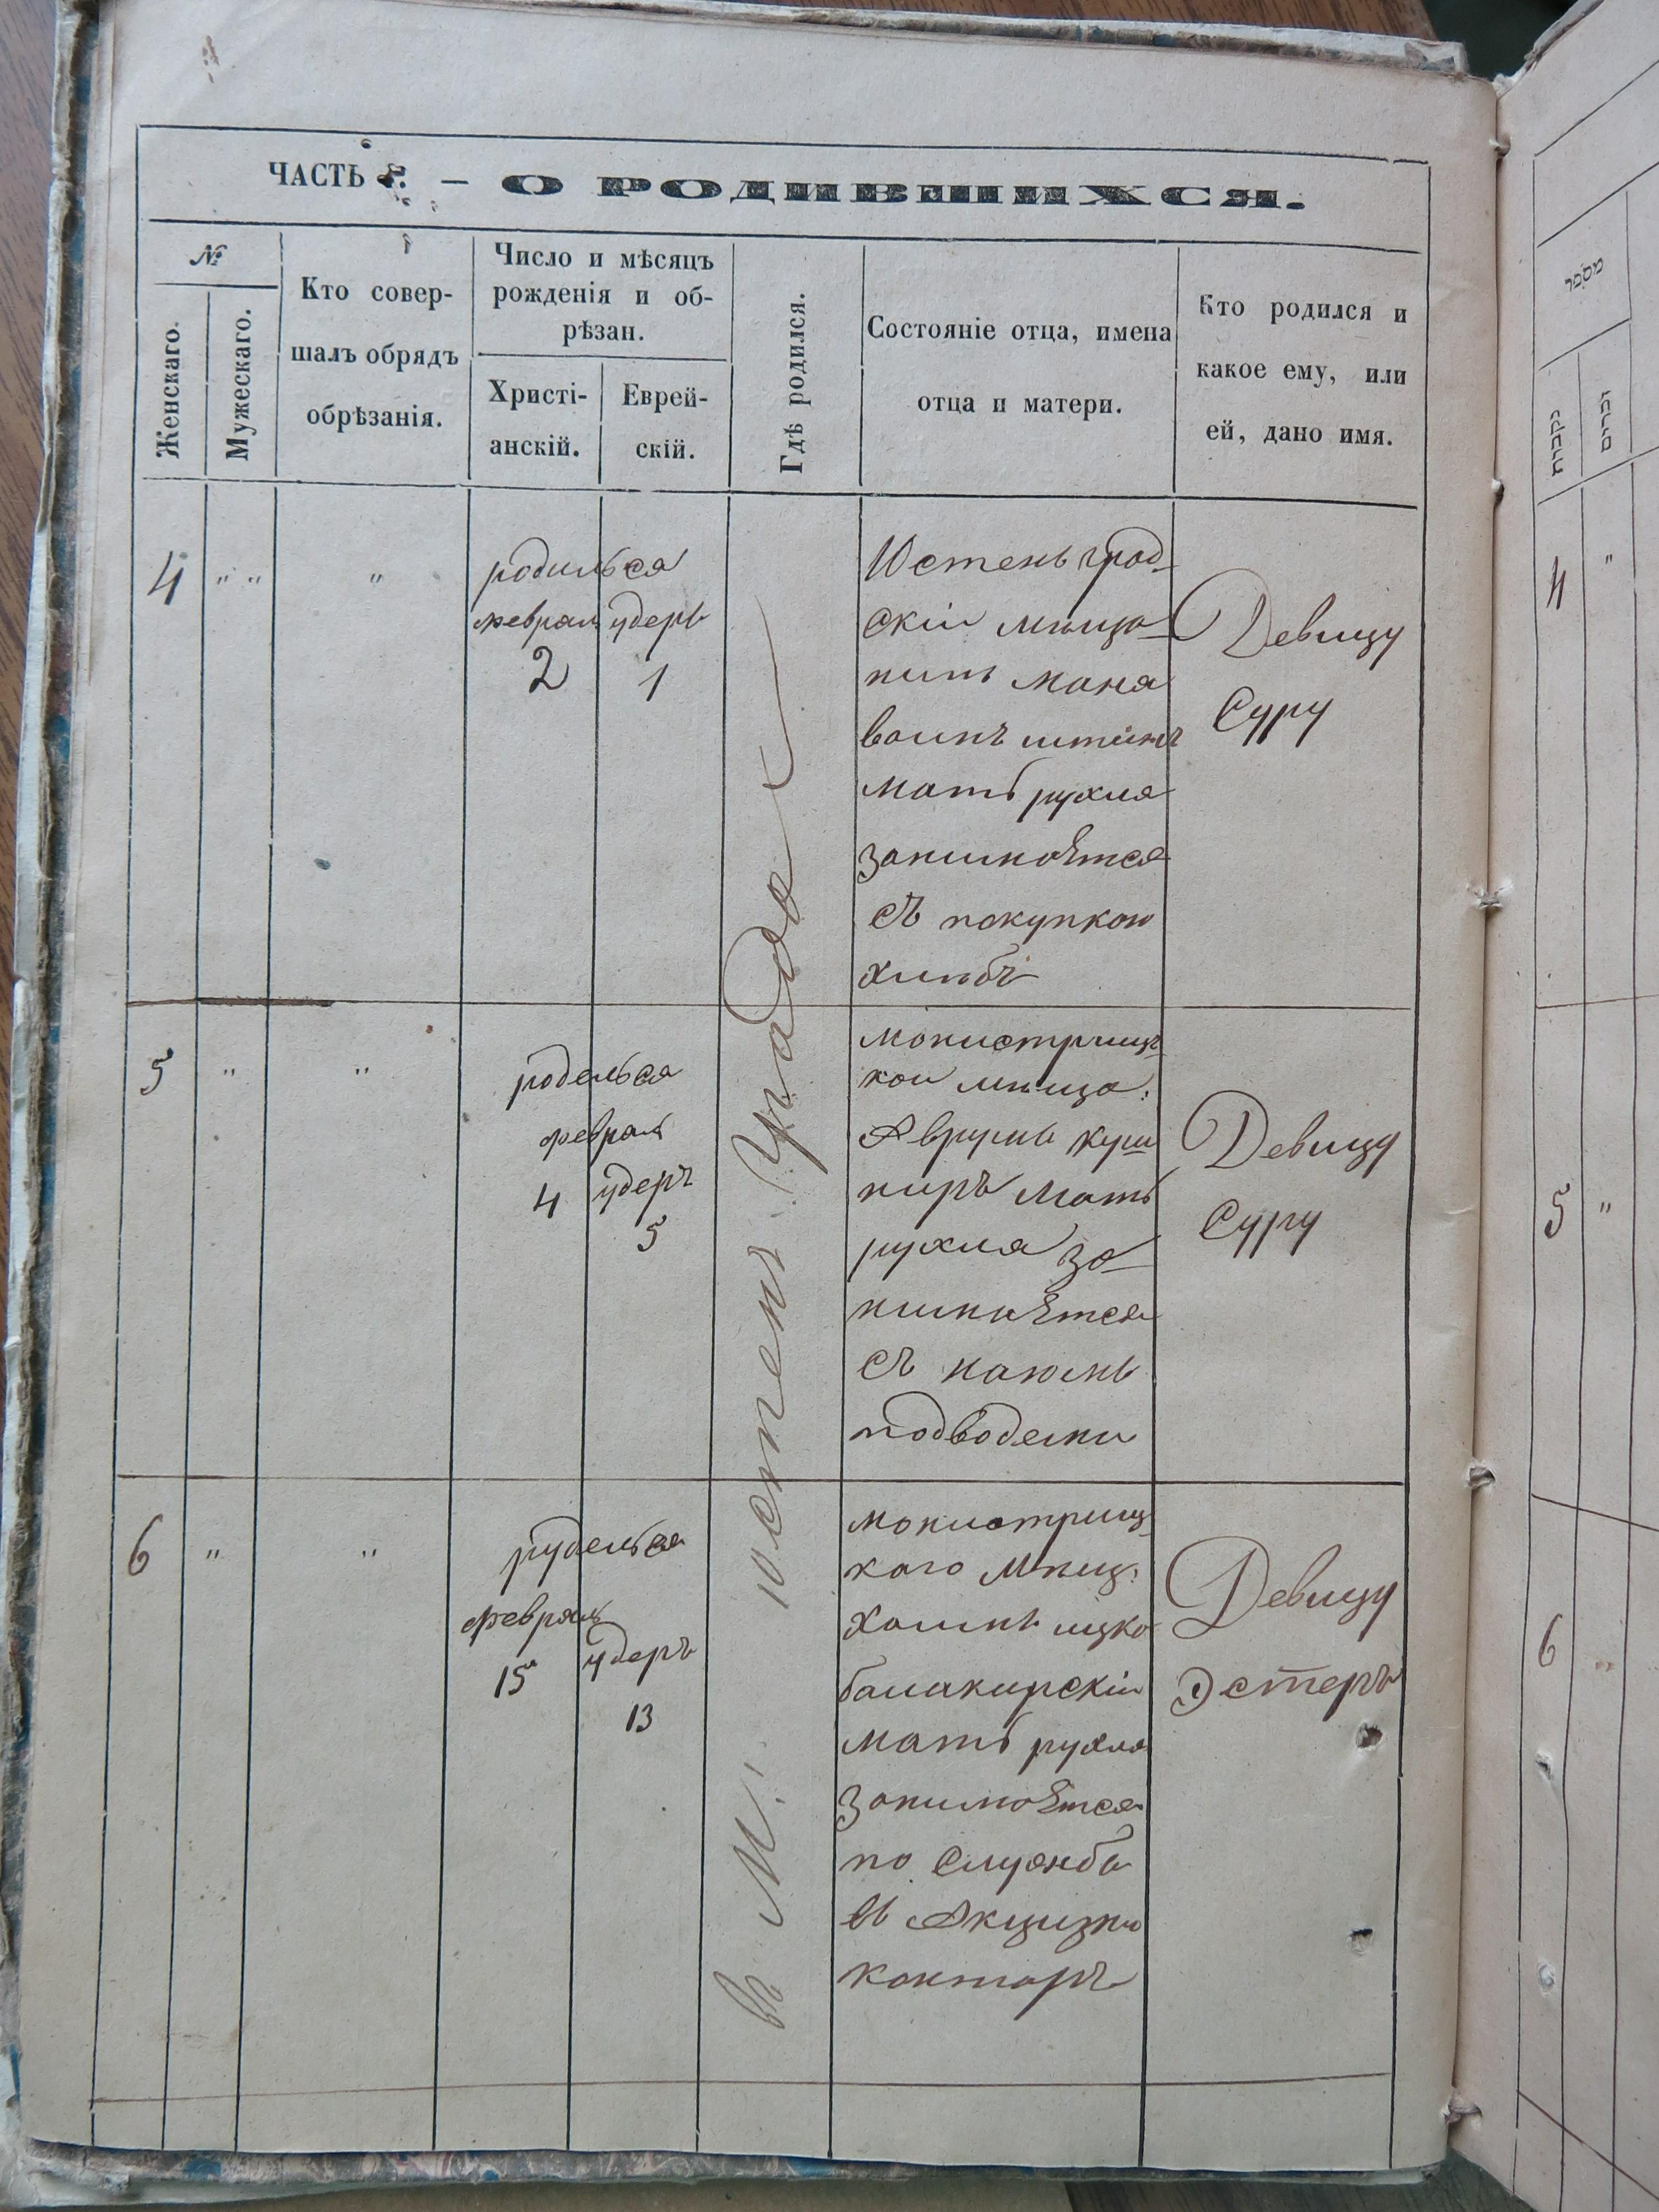 ЧАСТЬ I. — О РОДИВШИХСЯ.
№
Женскаго.
Мужескаго.
Кто совер-
шалъ обрядъ
обрѣзанія.
Число и мѣсяцъ
рожденія и об-
рѣзан.
Христі-
анскій.
Еврей-
скій.
Гдѣ родился.
Состояніе отца, имена
отца и матери.
Кто родился и
какое ему, или
ей, дано имя.
4 " " "
родилься
февраль
2
удеръ
1
в М. Юстенъ Градѣ
Юстеньград-
скій мѣща-
нинъ
мать рухля
занимаѣтся
съ покупкою
хлѣбъ
Девицу
Суру
5 " "
родельса
февраль
4
удеръ
5
монистрищ
кой мѣща:
Аврумъ куш
ниръ мать
рухля за-
нимаѣтся
съ наюмъ
Девицу
Суру
6 " "
руделься
февраль
15
удеръ
13
монистрищ
каго мѣщ:
Хаимъ ицко
балакирскій
мать рухля
занимаѣтся
по Службѣ
въ Акцизно
конторъ
Девицу
Эстеръ
מספר
נקבות
זכרים
4 "
5 "
6 "